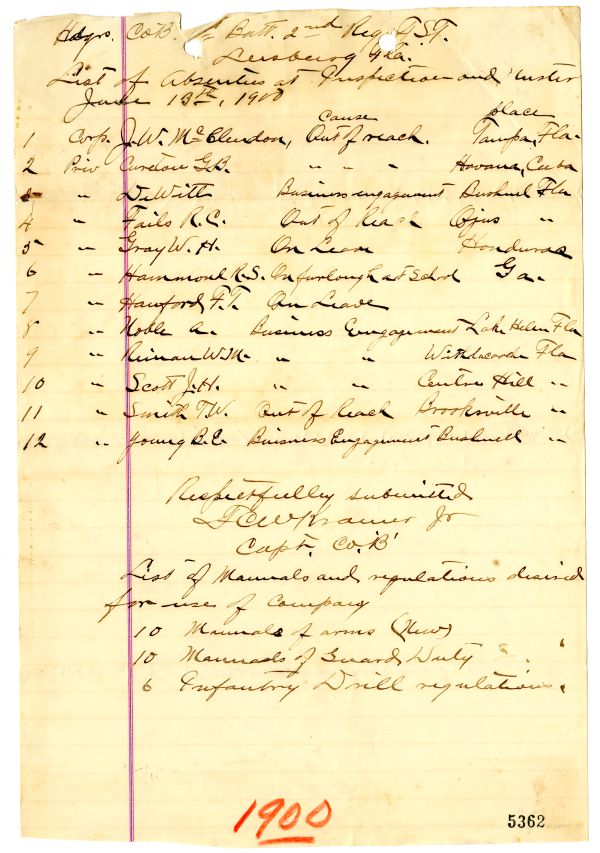 Hdqrs. Co B. Batt. 2nd Reg. F.S.T.
Leesburg Fla.
List of Absentees at Inspection and Muster
June 13th, 1900
cause place
1 Corp. J.W. McClendon, Out of reach. Tampa, Fla.
2 Priv Cureton G.B. " " " Havana, Cuba
3 " DeWitt Business engagement Bushnel Fla
4 " Fails R.C. Out of Reach Ojus "
5 " Gray W.H. On Leave Honduras
6 " Hammond R.S. On furlough at School Ga.
7 " Hanford F.T. On Leave
8 " Noble A. Business Engagement Lake Helen Fla
9 " W.M. " " Fla
10 " Scott J.H. " " Centre Hill "
11 " Smith T.W. Out of Reach Brooksville "
12 " Young B.E. Buisness Engagement Bushnell "
Respectfully submitted
Kramer Jr
Capt. Co. 'B'
List of Manuals and regulations desired
for use of Company
10 Manuals of arms (New)
10 Manuals of Guard Duty "
6 Infantry Drill regulations.
1900
5362